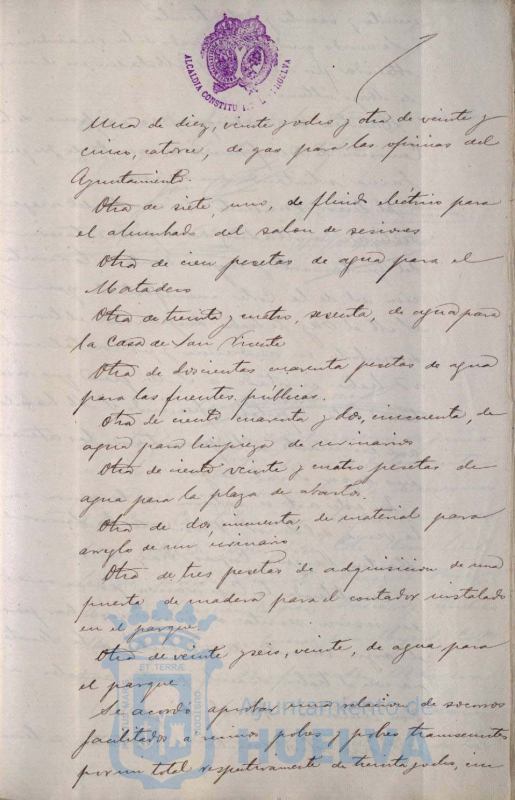 ALCALDIA CONSTITU HUELVA
Una de diez, veinte y dos y otra de veinte y
cinco, catorce, de gas para las oficinas del
Ayuntamiento.
Otra de siete, uno, de fluido eléctrico para
el alumbrado del salon de sesiones
Otra de cien pesetas de agua para el
Matadero
Otra de treinta y cuatro, sesenta, de agua para
la Casa de San Vicente
Otra de doscientas cuarenta pesetas de agua
para las fuentes públicas.
Otra de ciento cuarenta y dos, cincuenta, de
agua para limpieza de urinarios
Otra de ciento veinte y cuatro pesetas de
agua para la plaza de abastos.
Otra de dos, cincuenta, de material para
arreglo de un urinario
Otra de tres pesetas de adquisicion de una
puerta de madera para el contador instalado
en el parque.
Otra de veinte y seis, veinte, de agua para
el parque
Se acordó aprobar una relacion de socorros
facilitados a niños pobres y pobres transeuntes
por un total respectivamente de treinta y ocho, cin
ET TERRÆ
CUSTODIA
Ayuntamiento de
HUELVA